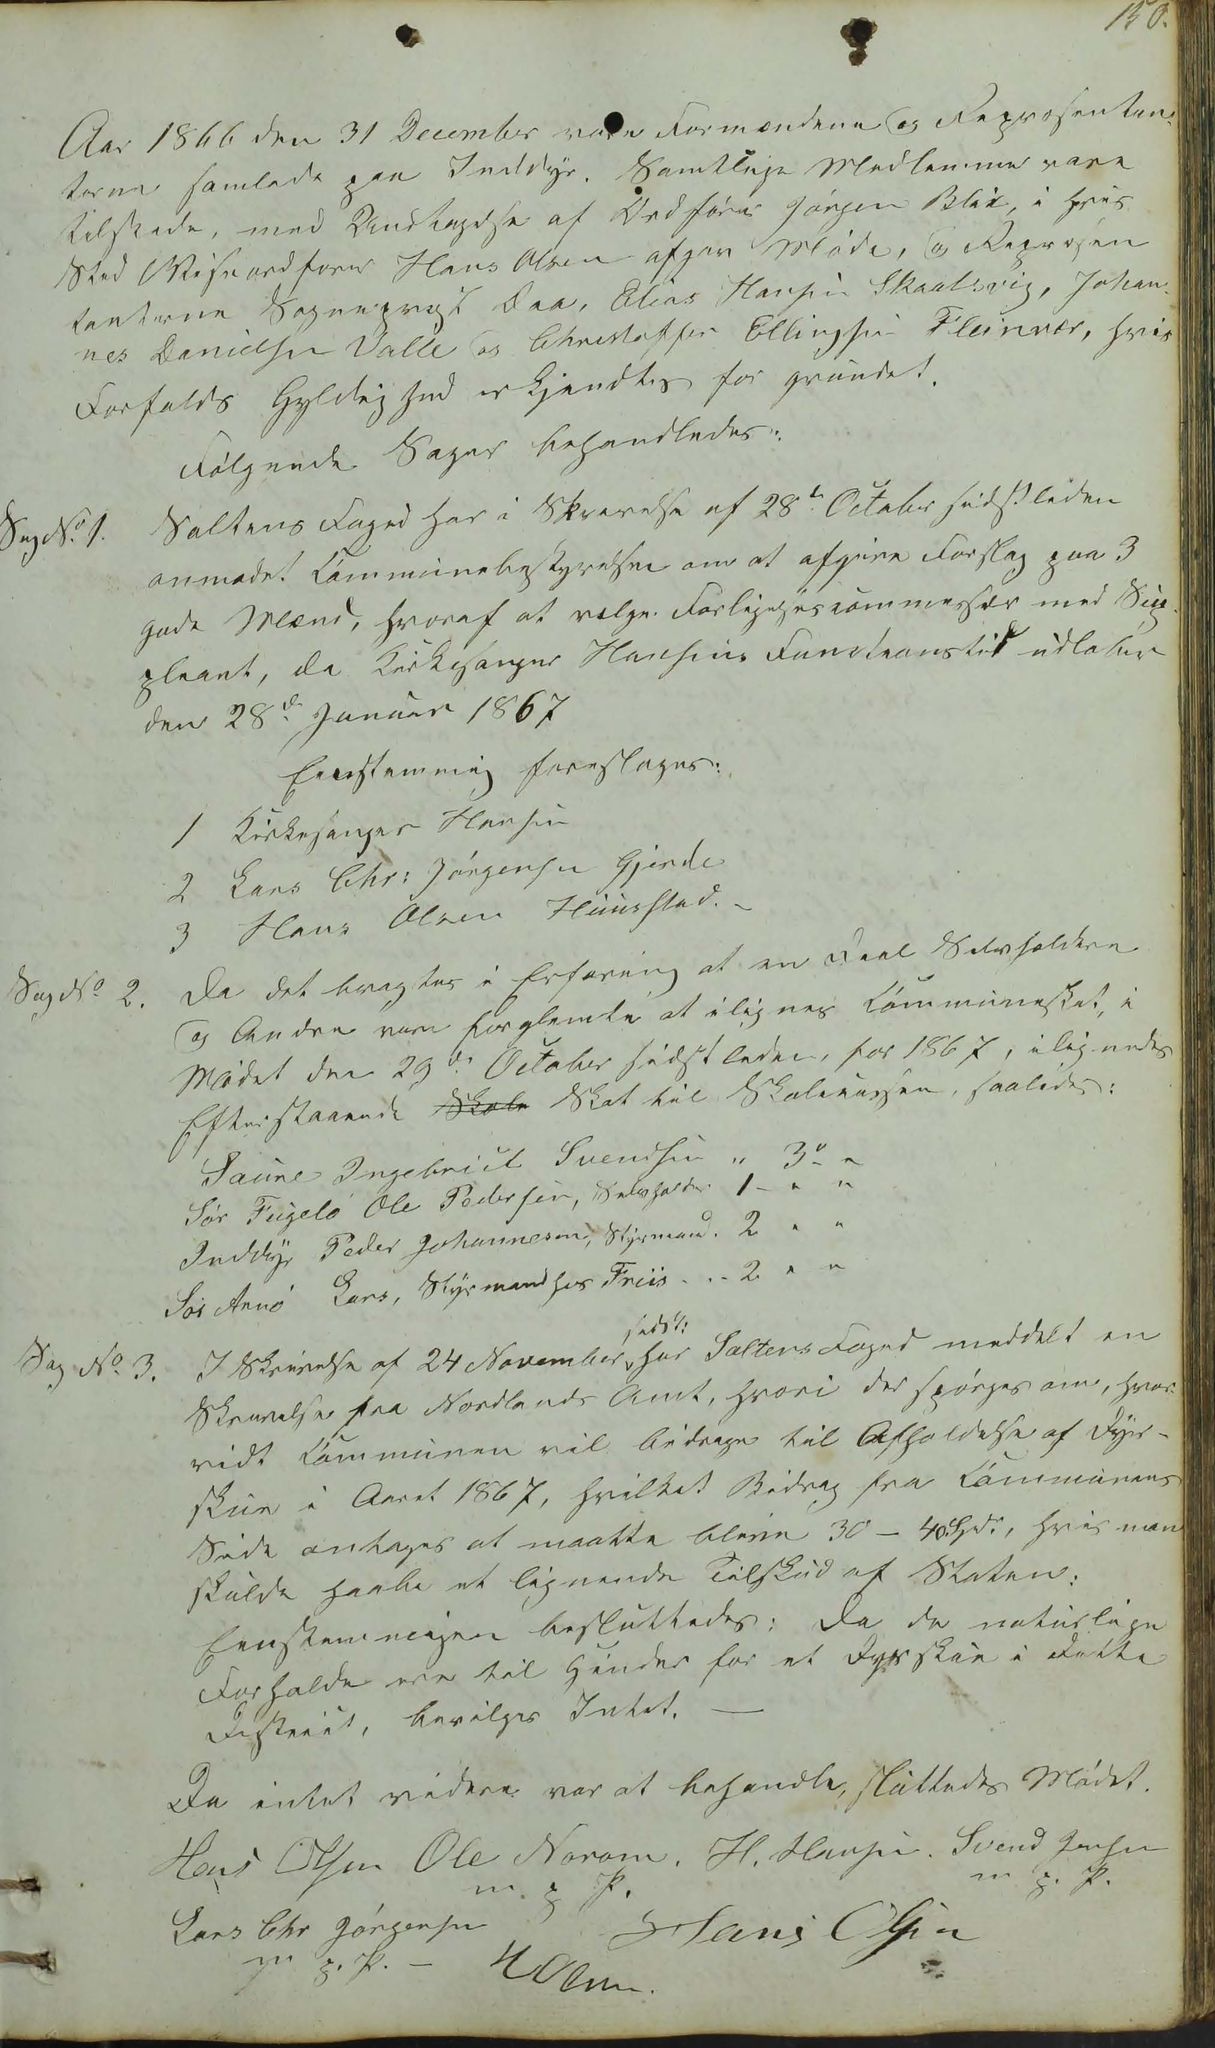 150.
Aar 1866 den 31 December vare Formændene og Repræsentan-
terne samlede paa Inddyr. Samtlige Medlemmer vare
tilstede, med Undtagelse af Ordfører Jørgen Blix, i hvis
Sted Viseordfører Hans Olsen afgav Møde, og Repræsen
tanterne Sogneprest Daa, Elias Hansen Skaalsvig, Johan-
nes Danielsen Valle og Christoffer Ellingsen Fleinvær, hvis
Forfalds Gyldighed erkjendtes for grundet.
Følgende Sager behandledes:
Sag No 1. Saltens Foged har i Skrivelse af 28de October sidstleden
anmodet Communebestyrelsen om at afgive Forslag paa 3
gode Mænd, hvoraf at vælge Forligelsescommissær med Sup-
pleant, da Kirkesanger Hansens Functionstid udløber
den 28de Januar 1867
Eenstemmig foresloges:
1 Kirkesanger Hansen
2 Lars Chr: Jørgensen Gjerde
3 Hans Olsen Huusstad. –
Sag No 2. Da det bragtes i Erfaring at en Deel Selvholdere
og Andre vare forglemte at ilignes Communeskat, i
Mødet den 29de October sidstleden, for 1867, ilignedes
Efterstaaende Skole Skat til Skolecassen, saaledes:
Saura Ingebrict Svendsen " 3 " "
Sør Fugelø Ole Pedersen, Selvholder 1 - " "
Inddyr Peder Johannesen, Styrmand. 2 " "
Sør Arnø Lars, Styrmand hos Friis - .. 2 " "
Sag No 3. I Skrivelse af 24 November sidstl: har Saltens Foged meddelt en
Skrivelse fra Nordlands Amt, hvori der spørges om, hvor-
vidt Communen vil bidrage til Afholdelse af Dyr-
skue i Aaret 1867, hvilket Bidrag fra Communens
Side antages at maatte blive 30 – 40 Spd:, hvis man
skulde haabe et lignende Tilskud af Staten:
Eenstemmigen besluttedes: Da de naturlige
Forholde ere til Hinder for et Dyrskue i dette
District, bevilges Intet. —
Da intet videre var at behandle, sluttedes Mødet.
Hans Olsen Ole Norom. H. Hansen. Svend Jensen
m. p. P. m. p. P.
Lars Chr Jørgensen Hans Olsen
m. p. P. – H Olsen.